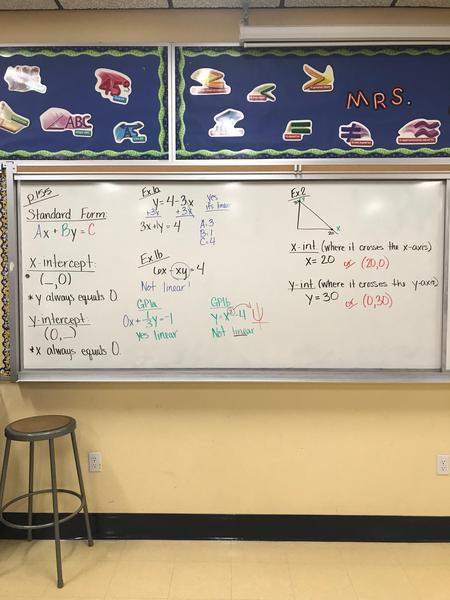 45°
ABC
MRS.
p.155
Standard Form:
Ax + By = C
X-intercept:
(_,0)
*y always equals 0
y-intercept:
(0,_)
*x always equals 0.
Ex1a
y = 4-3x
+3x +3x
3x+1y = 4
yes
it's linear
A: 3
B: 1
C: 4
Ex1b
6x - xy = 4
Not linear!
GP1a
0x + 1/3 y = -1
yes linear
GP1b
y = x² - 4
Not linear
Ex 2
30 y
20 x
X-int. (where it crosses the x-axis)
X = 20 or (20,0)
y-int. (where it crosses the y-axis)
y = 30 or (0,30)